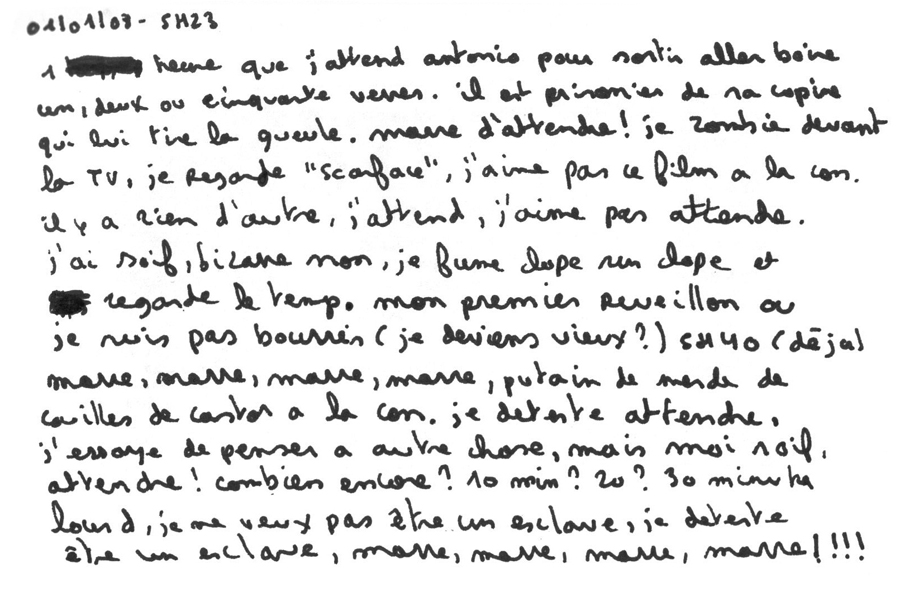 01/01/07 - 5H23
1 heure que j'attend antonio pour sortir aller boire
un, deux ou cinquante verres. il est prisonnier de sa copine
qui lui tire la gueule. marre d'attendre! je zombie devant
la TV, je regarde "scarface", j'aime pas ce film a la con.
il y a rien d'autre, j'attend, j'aime pas attendre.
j'ai soif, bizarre non, je fume clope sur clope et
regarde le temp. mon premier reveillon ou
je suis pas bourrés (je deviens vieux?) 5H40 (déja)
marre, marre, marre, marre, putain de merde de
couilles de castor a la con. je deteste attendre,
j'essaye de penser a autre chose, mais moi soif,
attendre! combien encore? 10 min? 20? 30 minutes
lourd, je ne veux pas être un esclave, je deteste
être un esclave, marre, marre, marre, marre!!!!